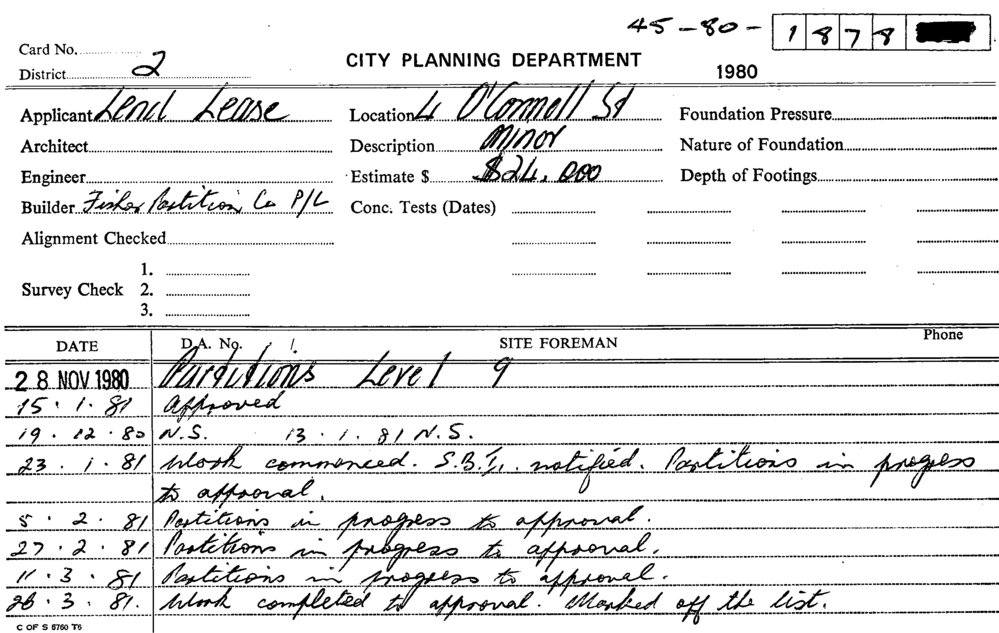 45-80-1878
Card No.
District 2
CITY PLANNING DEPARTMENT
1980
Applicant Lend Lease
Location 4 O'Connell St
Foundation Pressure
Architect
Description Minor
Nature of Foundation
Engineer
Estimate $ $24,000
Depth of Footings
Builder Fisher Partition Co P/L
Conc. Tests (Dates)
Alignment Checked
Survey Check
1.
2.
3.
DATE D.A. No. SITE FOREMAN Phone
28 NOV 1980 Partitions Level 9
15.1.81 Approved
19.12.80 N.S. 13.1.81 N.S.
23.1.81 Work commenced. S.B.I. notified. Partitions in progress
to approval.
5.2.81 Partitions in progress to approval.
27.2.81 Partitions in progress to approval.
11.3.81 Partitions in progress to approval.
26.3.81. Work completed to approval. Marked off the list.
C OF S 6760 T6